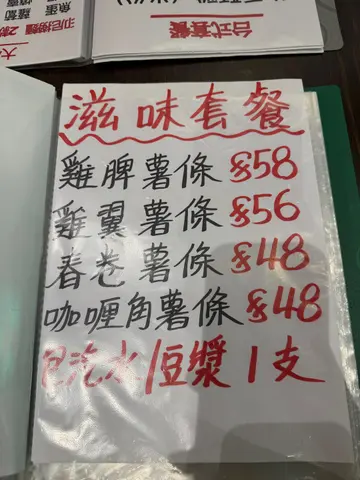 台式套餐
滋味套餐
雞脾薯條 $58
雞翼薯條 $56
春卷薯條 $48
咖喱角薯條 $48
包汽水/豆漿1支